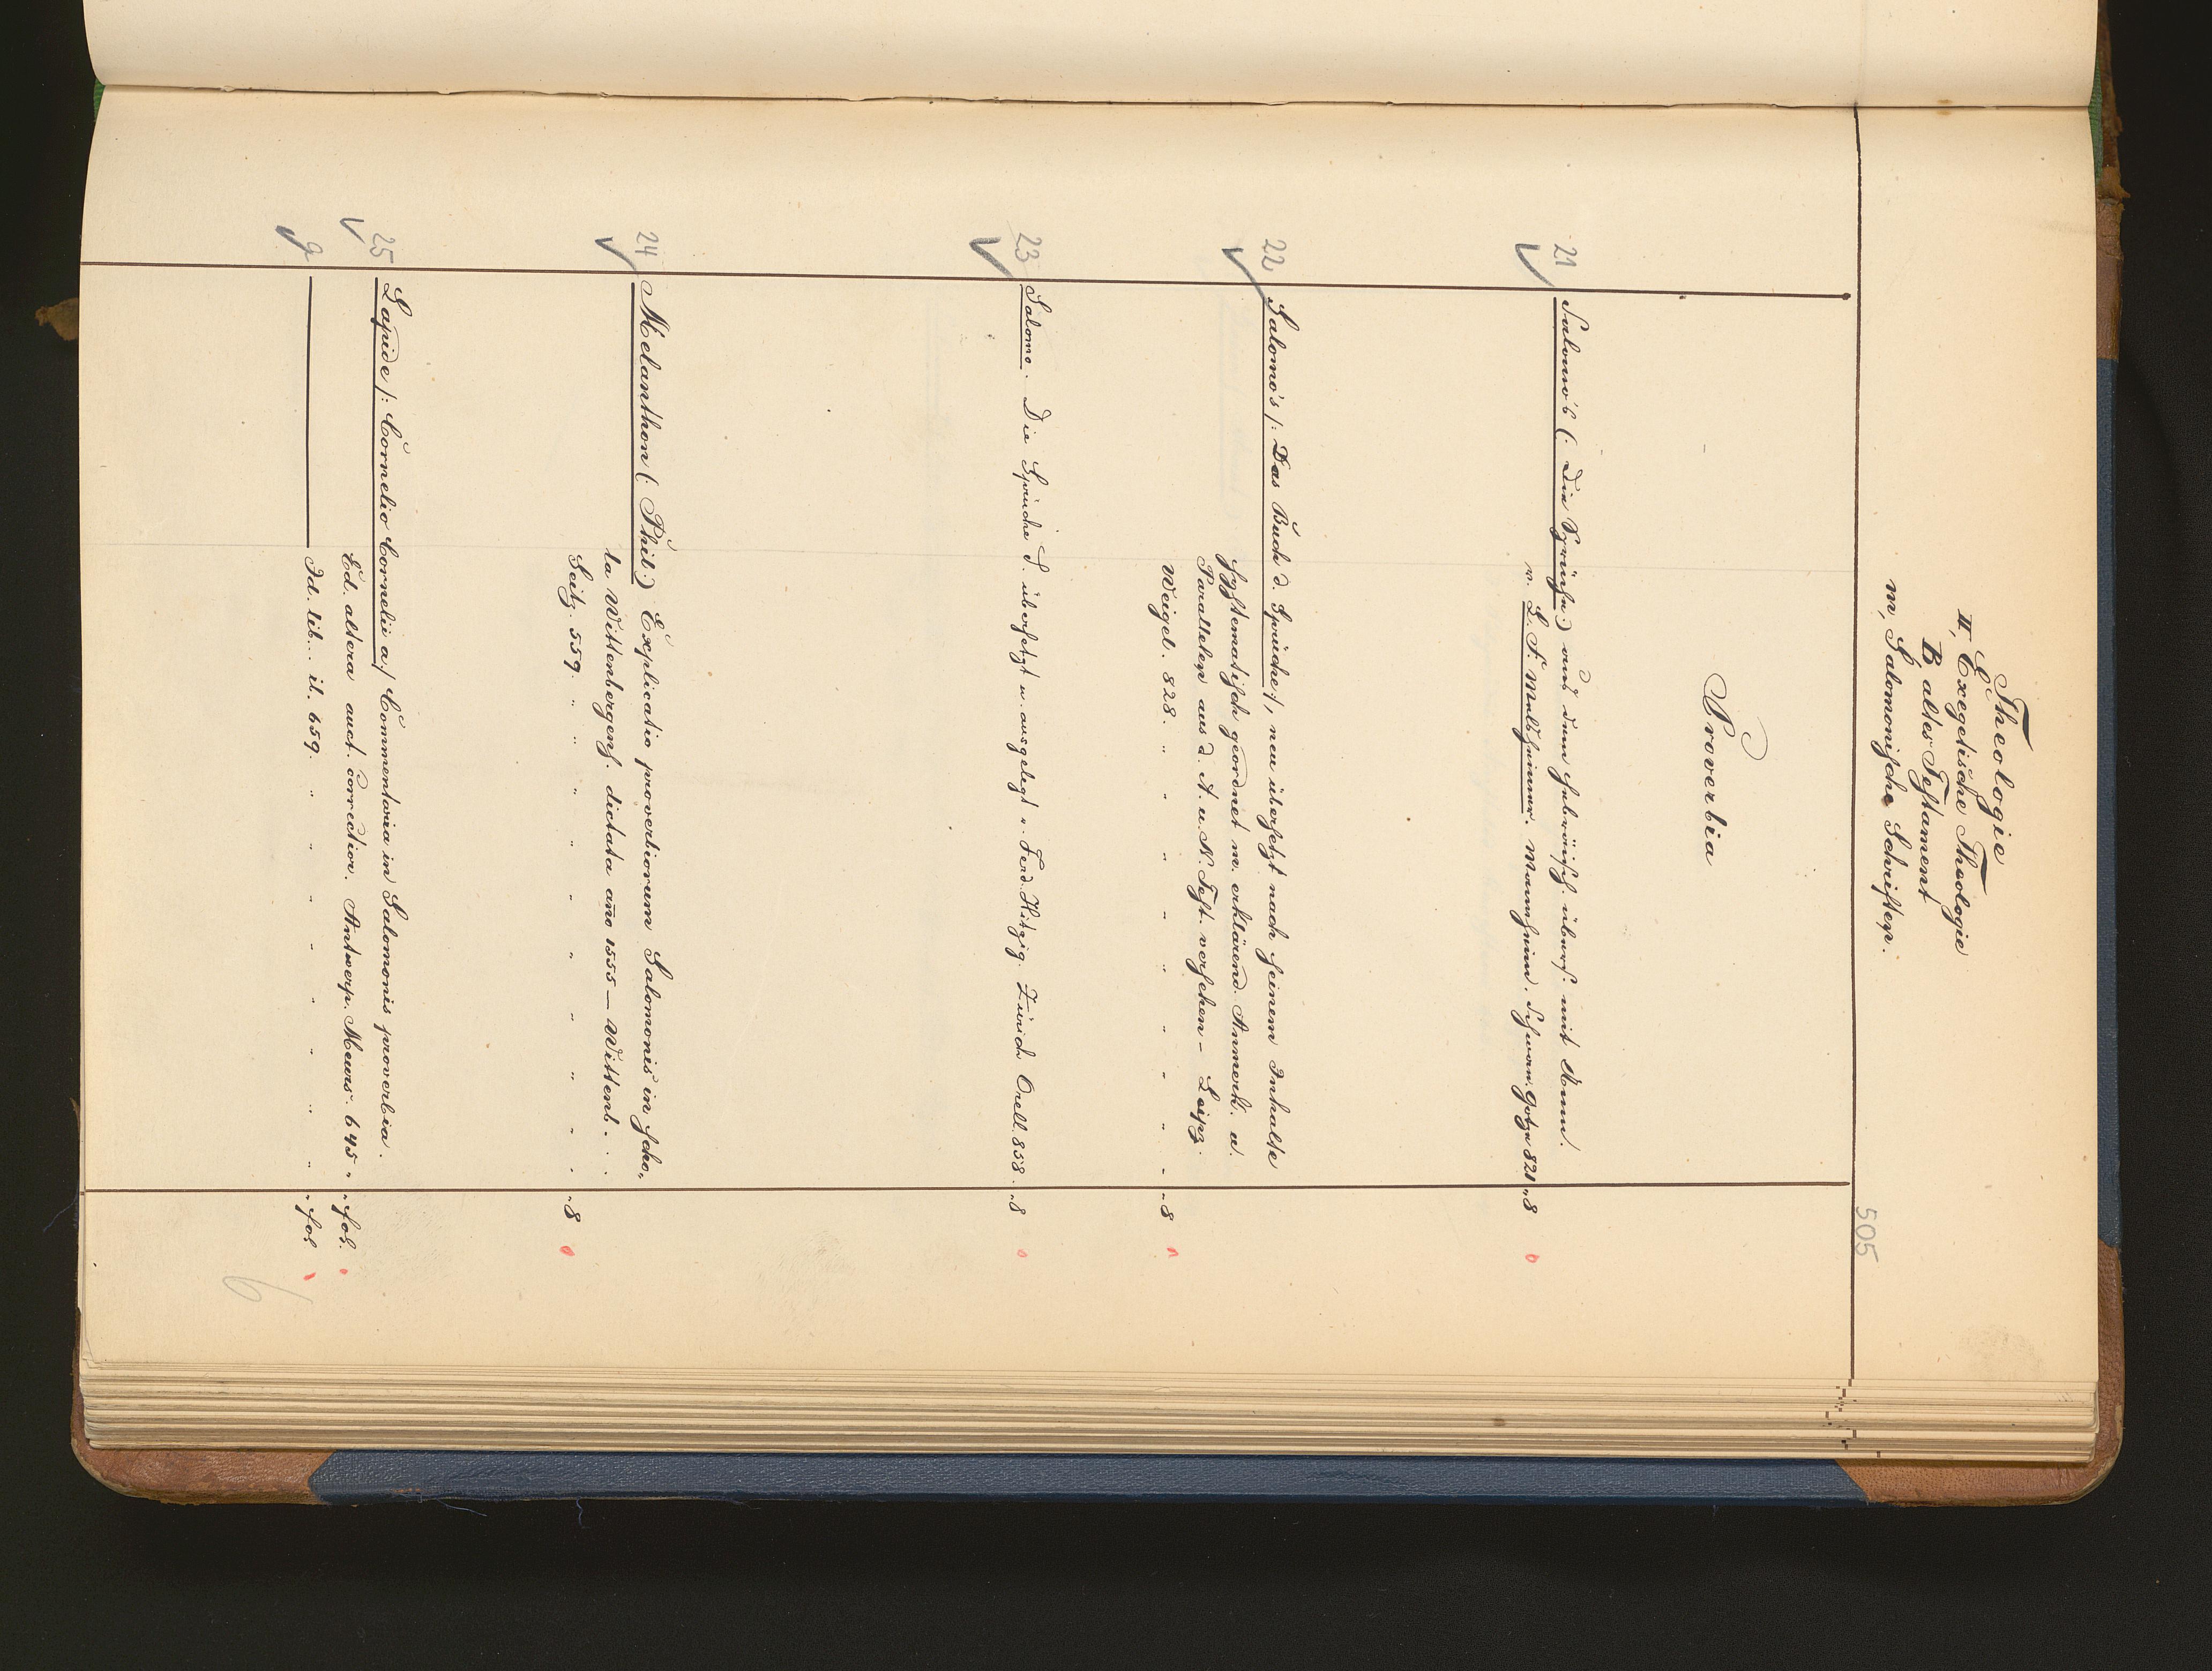 505
Theologie
II, Exegetische Theologie
B, altes Testament
m, Salomonische Schriften.
Proverbia
21 Salomo's (: Die Sprüche :) aus dem hebräisch. übers. mit Anm.
v. L. F. Melsheimer. Mannheim. Schwan. Götze 821 „ 8
22 Salomo's /: Das Buch d. Sprüche :/, neu übersetzt nach seinem Inhalte
systematisch geordnet m. erklärend. Anmerk. u.
Parallelen aus d. A. u. N. Test. versehen – Leipz.
Weigel. 828. „ „ „ „ „ „ „ „ 8
23 Salomo. Die Sprüche S. übersetzt u. ausgelegt v. Ferd. Hitzig. Zürich Orell. 858. „ 8
24 Melanthon (: Phil :) Explicatio proverbiorum Salomonis in scho„
la Wittenbergens. dictata año 1555 – Wittenb. . .
Seitz. 559. „ „ „ „ „ „ „ „ „ 8
25 Lapide /: Cornelio Cornelii a / Commentaria in Salomonis proverbia.
Ed. altera auct. correctior. Antwerp. Meurs. 645 „ „ fol.
Id. lib... il. 659. „ „ „ „ „ „ „ „ „ fol
6